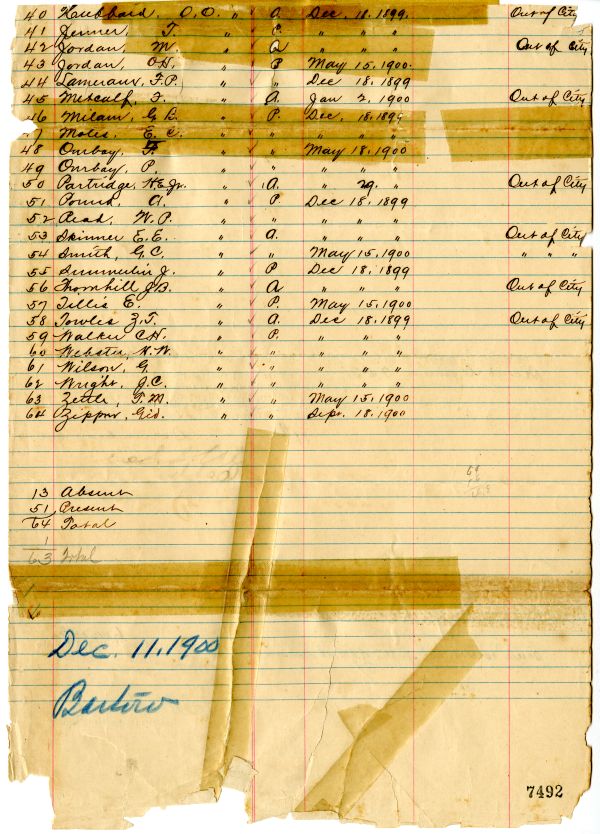 40 Hubbard, O.O. " A. Dec. 18. 1899. Out of City
41 Jenner, T. " P. " " "
42 Jordan, M. " A " " " Out of City
43 Jordan, O.H. " P May 15. 1900.
44 Lameraux, F.P. " " Dec 18. 1899
45 Metcalf, F. " A. Jan 2, 1900 Out of City
46 Milam, G B. " P. Dec. 18. 1899
47 Moles, E. C. " " " " "
48 " " May 18. 1900
49 P. " " " " "
50 Partridge, H.E. Jr. " A. " 29. " Out of City
51 Pound, A. " P. Dec 18. 1899
52 Read, W. P. " " " " "
53 Skinner E. E. " A. " " " Out of City
54 Smith, G. C. " " May 15. 1900 " " "
55 Summerlin J. " P Dec 18. 1899
56 Thornhill J.B. " A " " " Out of City
57 Tillis E. " P. May 15. 1900
58 Towles Z. T. " A. Dec 18. 1899 Out of City
59 Walker C.H. " P. " " "
60 Webster, W. " " " " "
61 Wilson, G. " " " " "
62 Wright, J.C. " " " " "
63 Zettle, T. M. " " May 15. 1900
64 Zipprer, Gid. " " Sept. 18. 1900
13 Absent
51 Present
64 Total
1
63 Total
Dec. 11. 1900
Bartow
7492